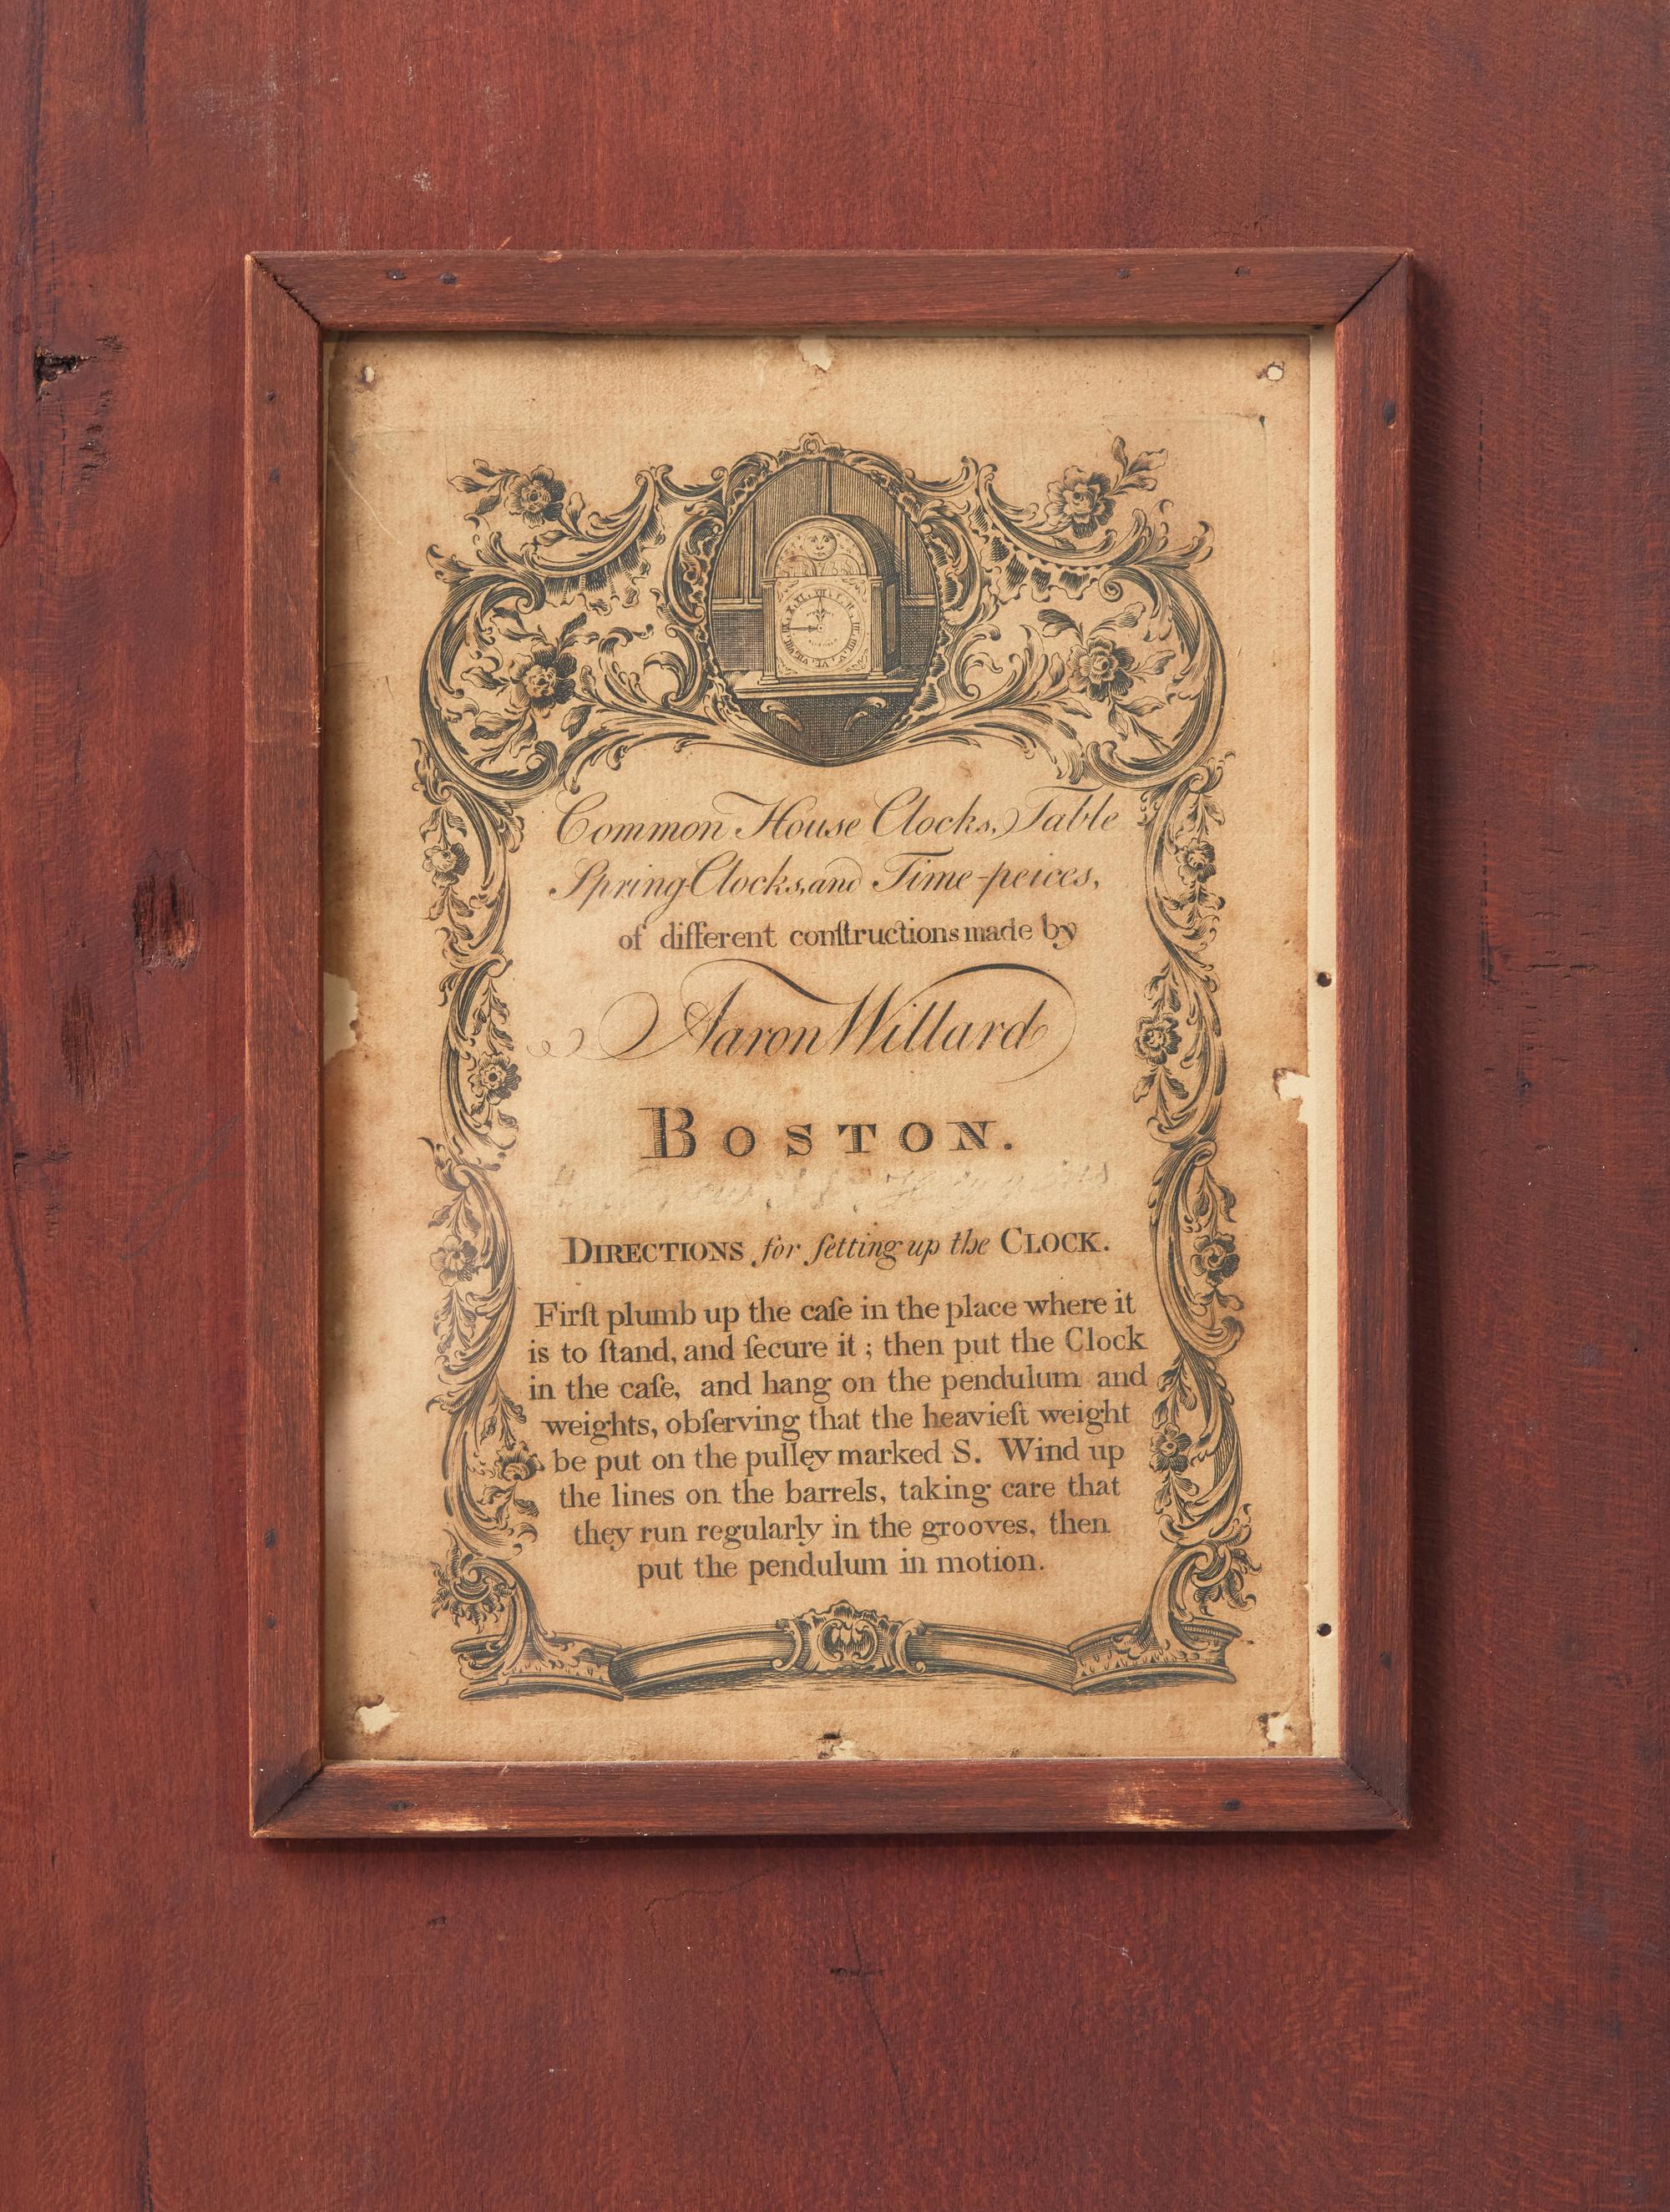 Common House Clocks, Table
Spring Clocks, and Time-peices,
of different conſtructions made by
Aaron Willard
BOSTON.
DIRECTIONS for ſetting up the CLOCK.
Firſt plumb up the caſe in the place where it
is to ſtand, and ſecure it ; then put the Clock
in the caſe, and hang on the pendulum and
weights, obſerving that the heavieſt weight
be put on the pulley marked S. Wind up
the lines on the barrels, taking care that
they run regularly in the grooves, then
put the pendulum in motion.